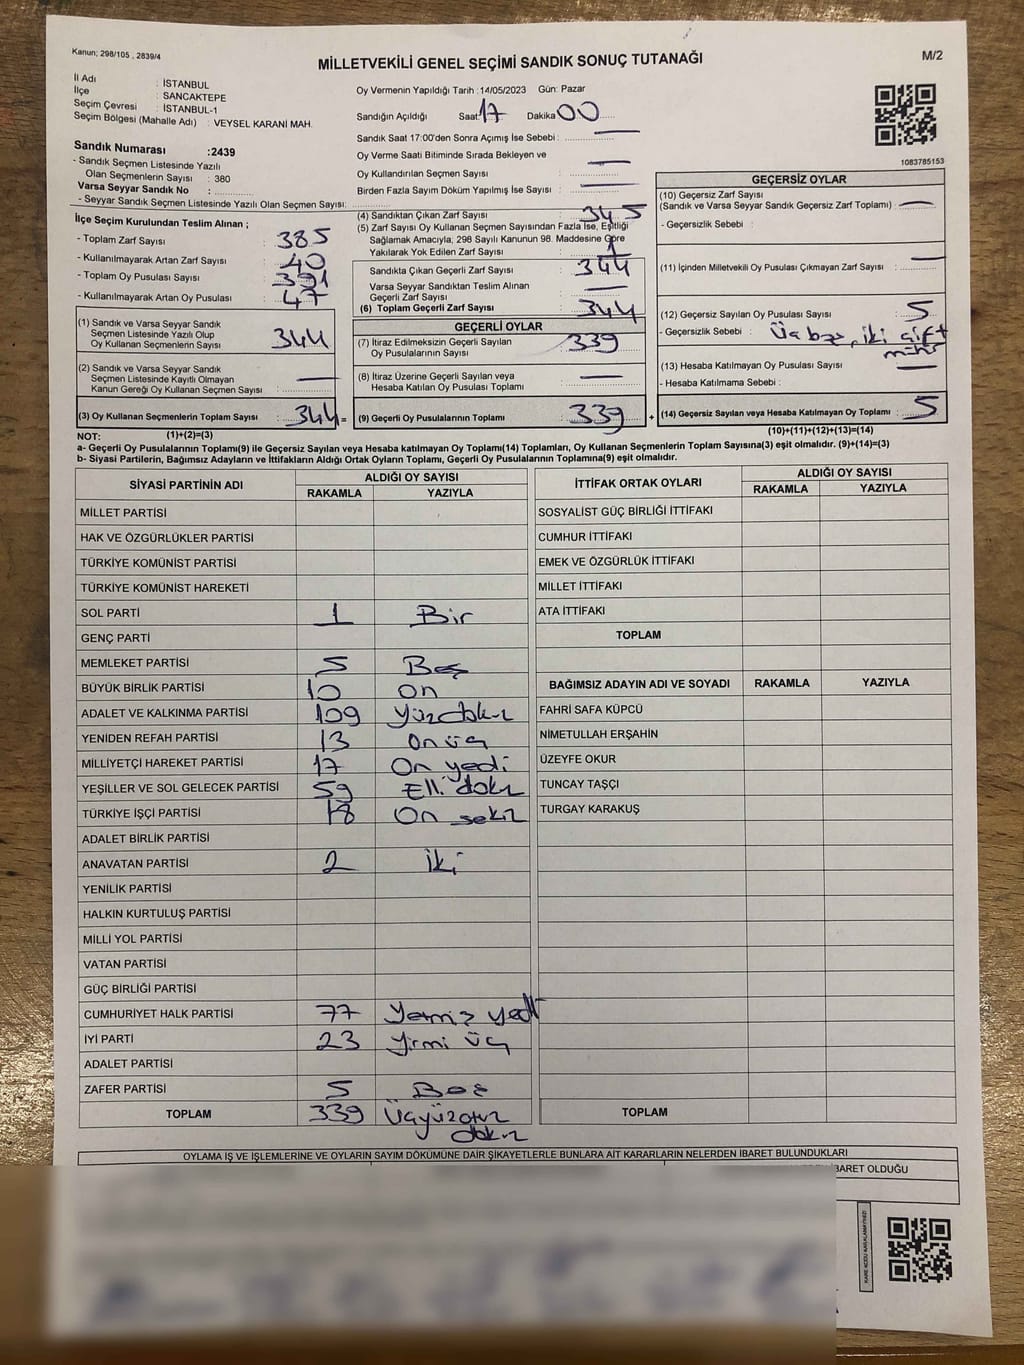 Kanun; 298/105 , 2839/4
MİLLETVEKİLİ GENEL SEÇİMİ SANDIK SONUÇ TUTANAĞI
M/2
İl Adı : İSTANBUL
İlçe : SANCAKTEPE
Seçim Çevresi : İSTANBUL-1
Seçim Bölgesi (Mahalle Adı) : VEYSEL KARANİ MAH.
Oy Vermenin Yapıldığı Tarih : 14/05/2023 Gün: Pazar
Sandığın Açıldığı Saat: 17 Dakika 00
Sandık Saat 17:00'den Sonra Açımış İse Sebebi : —
Oy Verme Saati Bitiminde Sırada Bekleyen ve
Oy Kullandırılan Seçmen Sayısı : —
Birden Fazla Sayım Döküm Yapılmış İse Sayısı : —
1083785153
Sandık Numarası :2439
- Sandık Seçmen Listesinde Yazılı
Olan Seçmenlerin Sayısı : 380
Varsa Seyyar Sandık No :
- Seyyar Sandık Seçmen Listesinde Yazılı Olan Seçmen Sayısı:
İlçe Seçim Kurulundan Teslim Alınan ;
- Toplam Zarf Sayısı : 385
- Kullanılmayarak Artan Zarf Sayısı : 40
- Toplam Oy Pusulası Sayısı : 391
- Kullanılmayarak Artan Oy Pusulası : 47
(1) Sandık ve Varsa Seyyar Sandık
Seçmen Listesinde Yazılı Olup
Oy Kullanan Seçmenlerin Sayısı : 344
(2) Sandık ve Varsa Seyyar Sandık
Seçmen Listesinde Kayıtlı Olmayan
Kanun Gereği Oy Kullanan Seçmen Sayısı : —
(3) Oy Kullanan Seçmenlerin Toplam Sayısı : 344 =
(1)+(2)=(3)
(4) Sandıktan Çıkan Zarf Sayısı : 345
(5) Zarf Sayısı Oy Kullanan Seçmen Sayısından Fazla İse, Eşitliği
Sağlamak Amacıyla, 298 Sayılı Kanunun 98. Maddesine Göre
Yakılarak Yok Edilen Zarf Sayısı : 1
Sandıkta Çıkan Geçerli Zarf Sayısı : 344
Varsa Seyyar Sandıktan Teslim Alınan
Geçerli Zarf Sayısı : —
(6) Toplam Geçerli Zarf Sayısı : 344
GEÇERLİ OYLAR
(7) İtiraz Edilmeksizin Geçerli Sayılan
Oy Pusulalarının Sayısı : 339
(8) İtiraz Üzerine Geçerli Sayılan veya
Hesaba Katılan Oy Pusulası Toplamı : —
(9) Geçerli Oy Pusulalarının Toplamı : 339 +
GEÇERSİZ OYLAR
(10) Geçersiz Zarf Sayısı
(Sandık ve Varsa Seyyar Sandık Geçersiz Zarf Toplamı) : —
- Geçersizlik Sebebi :
(11) İçinden Milletvekili Oy Pusulası Çıkmayan Zarf Sayısı : —
(12) Geçersiz Sayılan Oy Pusulası Sayısı : 5
- Geçersizlik Sebebi : Üç boş, iki çift
mühür
(13) Hesaba Katılmayan Oy Pusulası Sayısı : —
- Hesaba Katılmama Sebebi :
(14) Geçersiz Sayılan veya Hesaba Katılmayan Oy Toplamı : 5
(10)+(11)+(12)+(13)=(14)
NOT:
a- Geçerli Oy Pusulalarının Toplamı(9) ile Geçersiz Sayılan veya Hesaba katılmayan Oy Toplamı(14) Toplamları, Oy Kullanan Seçmenlerin Toplam Sayısına(3) eşit olmalıdır. (9)+(14)=(3)
b- Siyasi Partilerin, Bağımsız Adayların ve İttifakların Aldığı Ortak Oyların Toplamı, Geçerli Oy Pusulalarının Toplamına(9) eşit olmalıdır.
SİYASİ PARTİNİN ADI ALDIĞI OY SAYISI
RAKAMLA YAZIYLA
MİLLET PARTİSİ
HAK VE ÖZGÜRLÜKLER PARTİSİ
TÜRKİYE KOMÜNİST PARTİSİ
TÜRKİYE KOMÜNİST HAREKETİ
SOL PARTİ 1 Bir
GENÇ PARTİ
MEMLEKET PARTİSİ 5 Beş
BÜYÜK BİRLİK PARTİSİ 10 On
ADALET VE KALKINMA PARTİSİ 109 Yüzdokuz
YENİDEN REFAH PARTİSİ 13 On üç
MİLLİYETÇİ HAREKET PARTİSİ 17 On yedi
YEŞİLLER VE SOL GELECEK PARTİSİ 59 Elli dokuz
TÜRKİYE İŞÇİ PARTİSİ 18 On sekiz
ADALET BİRLİK PARTİSİ
ANAVATAN PARTİSİ 2 İki
YENİLİK PARTİSİ
HALKIN KURTULUŞ PARTİSİ
MİLLİ YOL PARTİSİ
VATAN PARTİSİ
GÜÇ BİRLİĞİ PARTİSİ
CUMHURİYET HALK PARTİSİ 77 Yetmiş yedi
İYİ PARTİ 23 Yirmi üç
ADALET PARTİSİ
ZAFER PARTİSİ 5 Beş
TOPLAM 339 Üçyüzotuz
dokuz
İTTİFAK ORTAK OYLARI ALDIĞI OY SAYISI
RAKAMLA YAZIYLA
SOSYALİST GÜÇ BİRLİĞİ İTTİFAKI
CUMHUR İTTİFAKI
EMEK VE ÖZGÜRLÜK İTTİFAKI
MİLLET İTTİFAKI
ATA İTTİFAKI
TOPLAM
BAĞIMSIZ ADAYIN ADI VE SOYADI RAKAMLA YAZIYLA
FAHRİ SAFA KÜPCÜ
NİMETULLAH ERŞAHİN
ÜZEYFE OKUR
TUNCAY TAŞÇI
TURGAY KARAKUŞ
TOPLAM
OYLAMA İŞ VE İŞLEMLERİNE VE OYLARIN SAYIM DÖKÜMÜNE DAİR ŞİKAYETLERLE BUNLARA AİT KARARLARIN NELERDEN İBARET BULUNDUKLARI
İBARET OLDUĞU